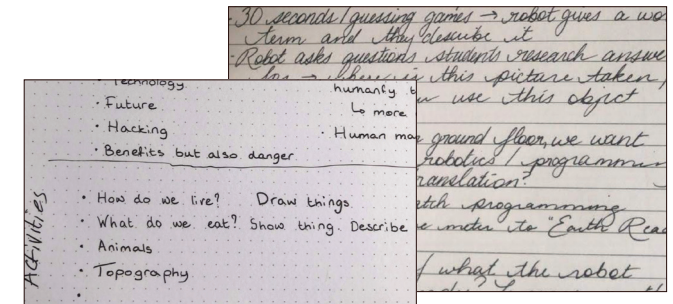 - 30 seconds / guessing games → robot gives a
term and they describe it
- Robot asks questions students research
for → where is this picture taken,
use this object
ground floor, we want
robotics /
programming
meter to "Earth
of what the robot
Technology
· Future
· Hacking
· Benefits but also danger
more
· Human
Activities
· How do we live? Draw things
· What do we eat? Show thing. Describe
· Animals
· Topography